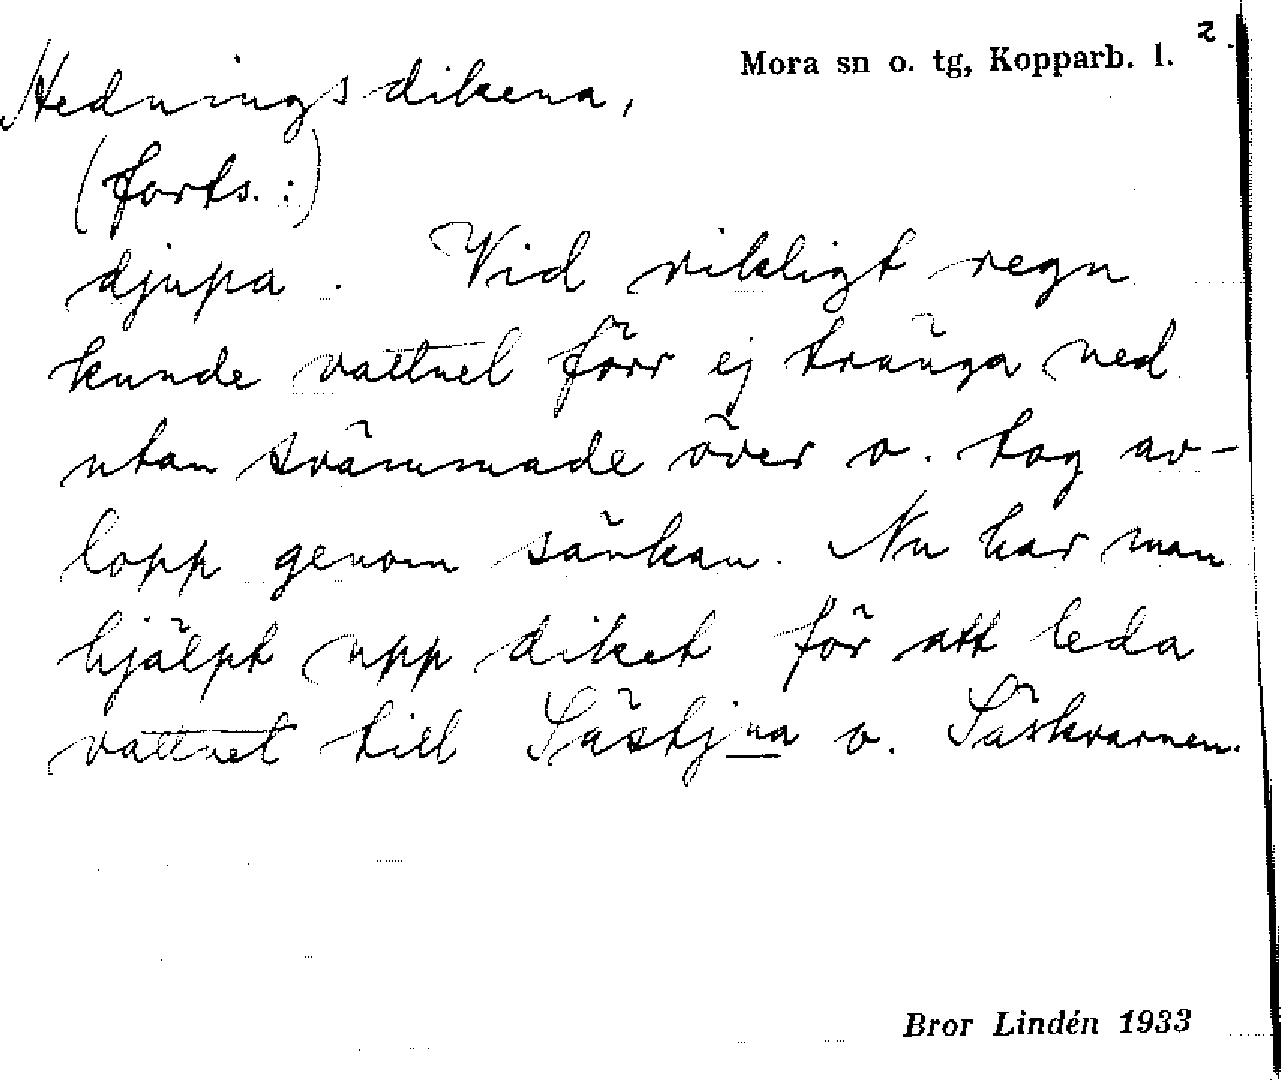 2.
Mora sn o. tg, Kopparb. l.
Hedningsdikena,
(forts.:)
djupa. Vid rikligt regn
kunde vattnet förr ej tränga ned
utan svämmade över o. tog av-
lopp genom sänkan. Nu har man
hjälpt upp diket för att leda
vattnet till Sästjna o. Säskvarnen.
Bror Lindén 1933